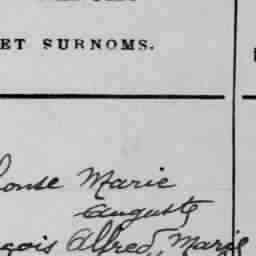 ET SURNOMS.
onse Marie
Auguste
çois Alfred, Marie